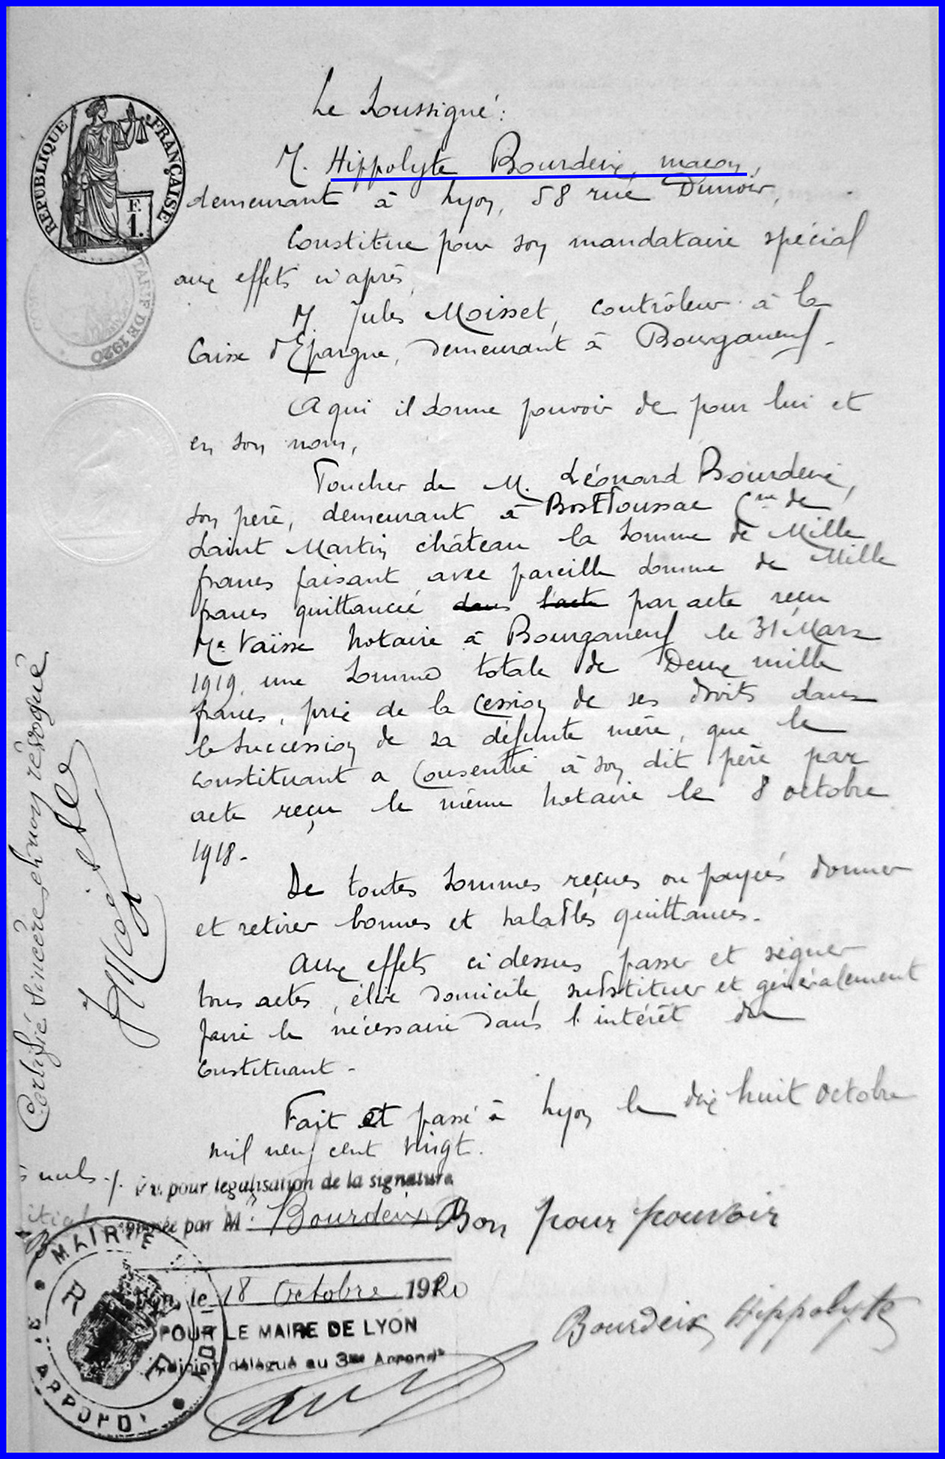 RÉPUBLIQUE FRANÇAISE
F.
1.
TARIF DE 1920
Le Soussigné:
M. Hippolyte Bourdeix, maçon,
demeurant à Lyon, 58 rue Dunoir,
Constitue pour son mandataire spécial
aux effets ci après,
M Jules Moisset, contrôleur à la
Caisse d'Epargne, demeurant à Bourganeuf.
A qui il donne pouvoir de pour lui et
en son nom,
Toucher de M. Léonard Bourdeix,
son père, demeurant à Bostfoussac Cne de
Saint Martin château la somme de Mille
francs faisant avec pareille somme de Mille
francs quittancée dans l'acte par acte reçu
Me Vaïsse notaire à Bourganeuf le 31 Mars
1919, une somme totale de Deux mille
francs, prix de la cession de ses droits dans
la succession de sa défunte mère, que le
constituant a consentie à son dit père par
acte reçu le même notaire le 8 octobre
1918-
De toutes sommes reçues ou payées donner
et retirer bonnes et valables quittances-
Aux effets ci dessus passer et signer
tous actes, élire domicile, substituer et généralement
faire le nécessaire dans l'intérêt du
Constituant-
Fait et passé à Lyon le dix huit octobre
mil neuf cent vingt.
Certifié sincère et non révoqué
nuls
Vu pour légalisation de la signature
apposée par M. Bourdeix
Bon pour pouvoir
le 18 Octobre 1920
POUR LE MAIRE DE LYON
Adjoint délégué au 3me Arrondt
Bourdeix Hippolyte
MAIRIE
R F
3e ARRONDt